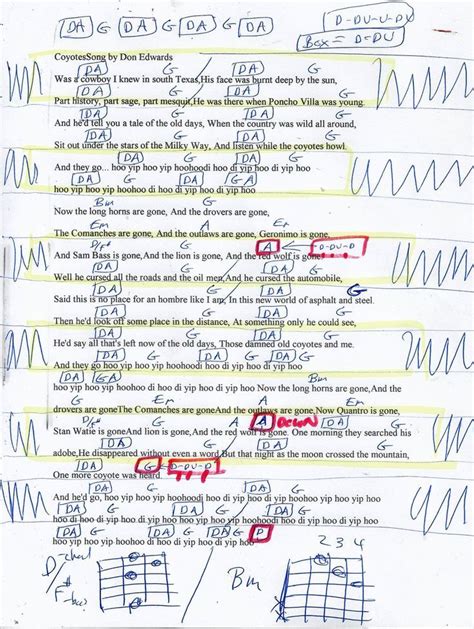 DA G DA G DA G DA D-DU-U-DX
Box = D-DU
CoyotesSong by Don Edwards
DA G DA G
Was a cowboy I knew in south Texas,His face was burnt deep by the sun,
DA G DA G
Part history, part sage, part mesquit,He was there when Poncho Villa was young.
DA G DA G
And he'd tell you a tale of the old days, When the country was wild all around,
DA G DA G
Sit out under the stars of the Milky Way, And listen while the coyotes howl.
DA G DA G
And they go... hoo yip hoo yip hoohoodi hoo di yip hoo di yip hoo
DA G DA GA
hoo yip hoo yip hoohoo di hoo di yip hoo di yip hoo
Bm G
Now the long horns are gone, And the drovers are gone,
Em A Em
The Comanches are gone, And the outlaws are gone, Geronimo is gone,
D/f# G A D-DU-D
And Sam Bass is gone, And the lion is gone, And the red wolf is gone
DA G DA G
Well he cursed all the roads and the oil men, And he cursed the automobile,
DA G DA G
Said this is no place for an hombre like I am, In this new world of asphalt and steel.
DA G DA G
Then he'd look off some place in the distance, At something only he could see,
DA G DA G
He'd say all that's left now of the old days, Those damned old coyotes and me.
DA G DA G DA G
And they go hoo yip hoo yip hoohoodi hoo di yip hoo di yip hoo
DA GA Bm
hoo yip hoo yip hoohoo di hoo di yip hoo di yip hoo Now the long horns are gone,And the
G Em A Em
drovers are goneThe Comanches are goneAnd the outlaws are gone,Now Quantro is gone,
D/f# G A A DOWN DA G
Stan Watie is goneAnd lion is gone,And the red wolf is gone. One morning they searched his
DA G DA G
adobe,He disappeared without even a word,But that night as the moon crossed the mountain,
DA G D-DU-D
One more coyote was heard.
DA G DA G DA G
And he'd go, hoo yip hoo yip hoohoodi hoo di yip hoo di yip hoo di yip hoo di yip hoo
DA G DA G DA G
hoo di hoo di yip hoo di yip hoo hoo yip hoo yip hoohoodi hoo di yip hoo di yip hoo
DA G DA G DA G D
hoo yip hoo yip hoohoo di hoo di yip hoo di yip hoo
D-chord
F#
Bm
2 3 4
X